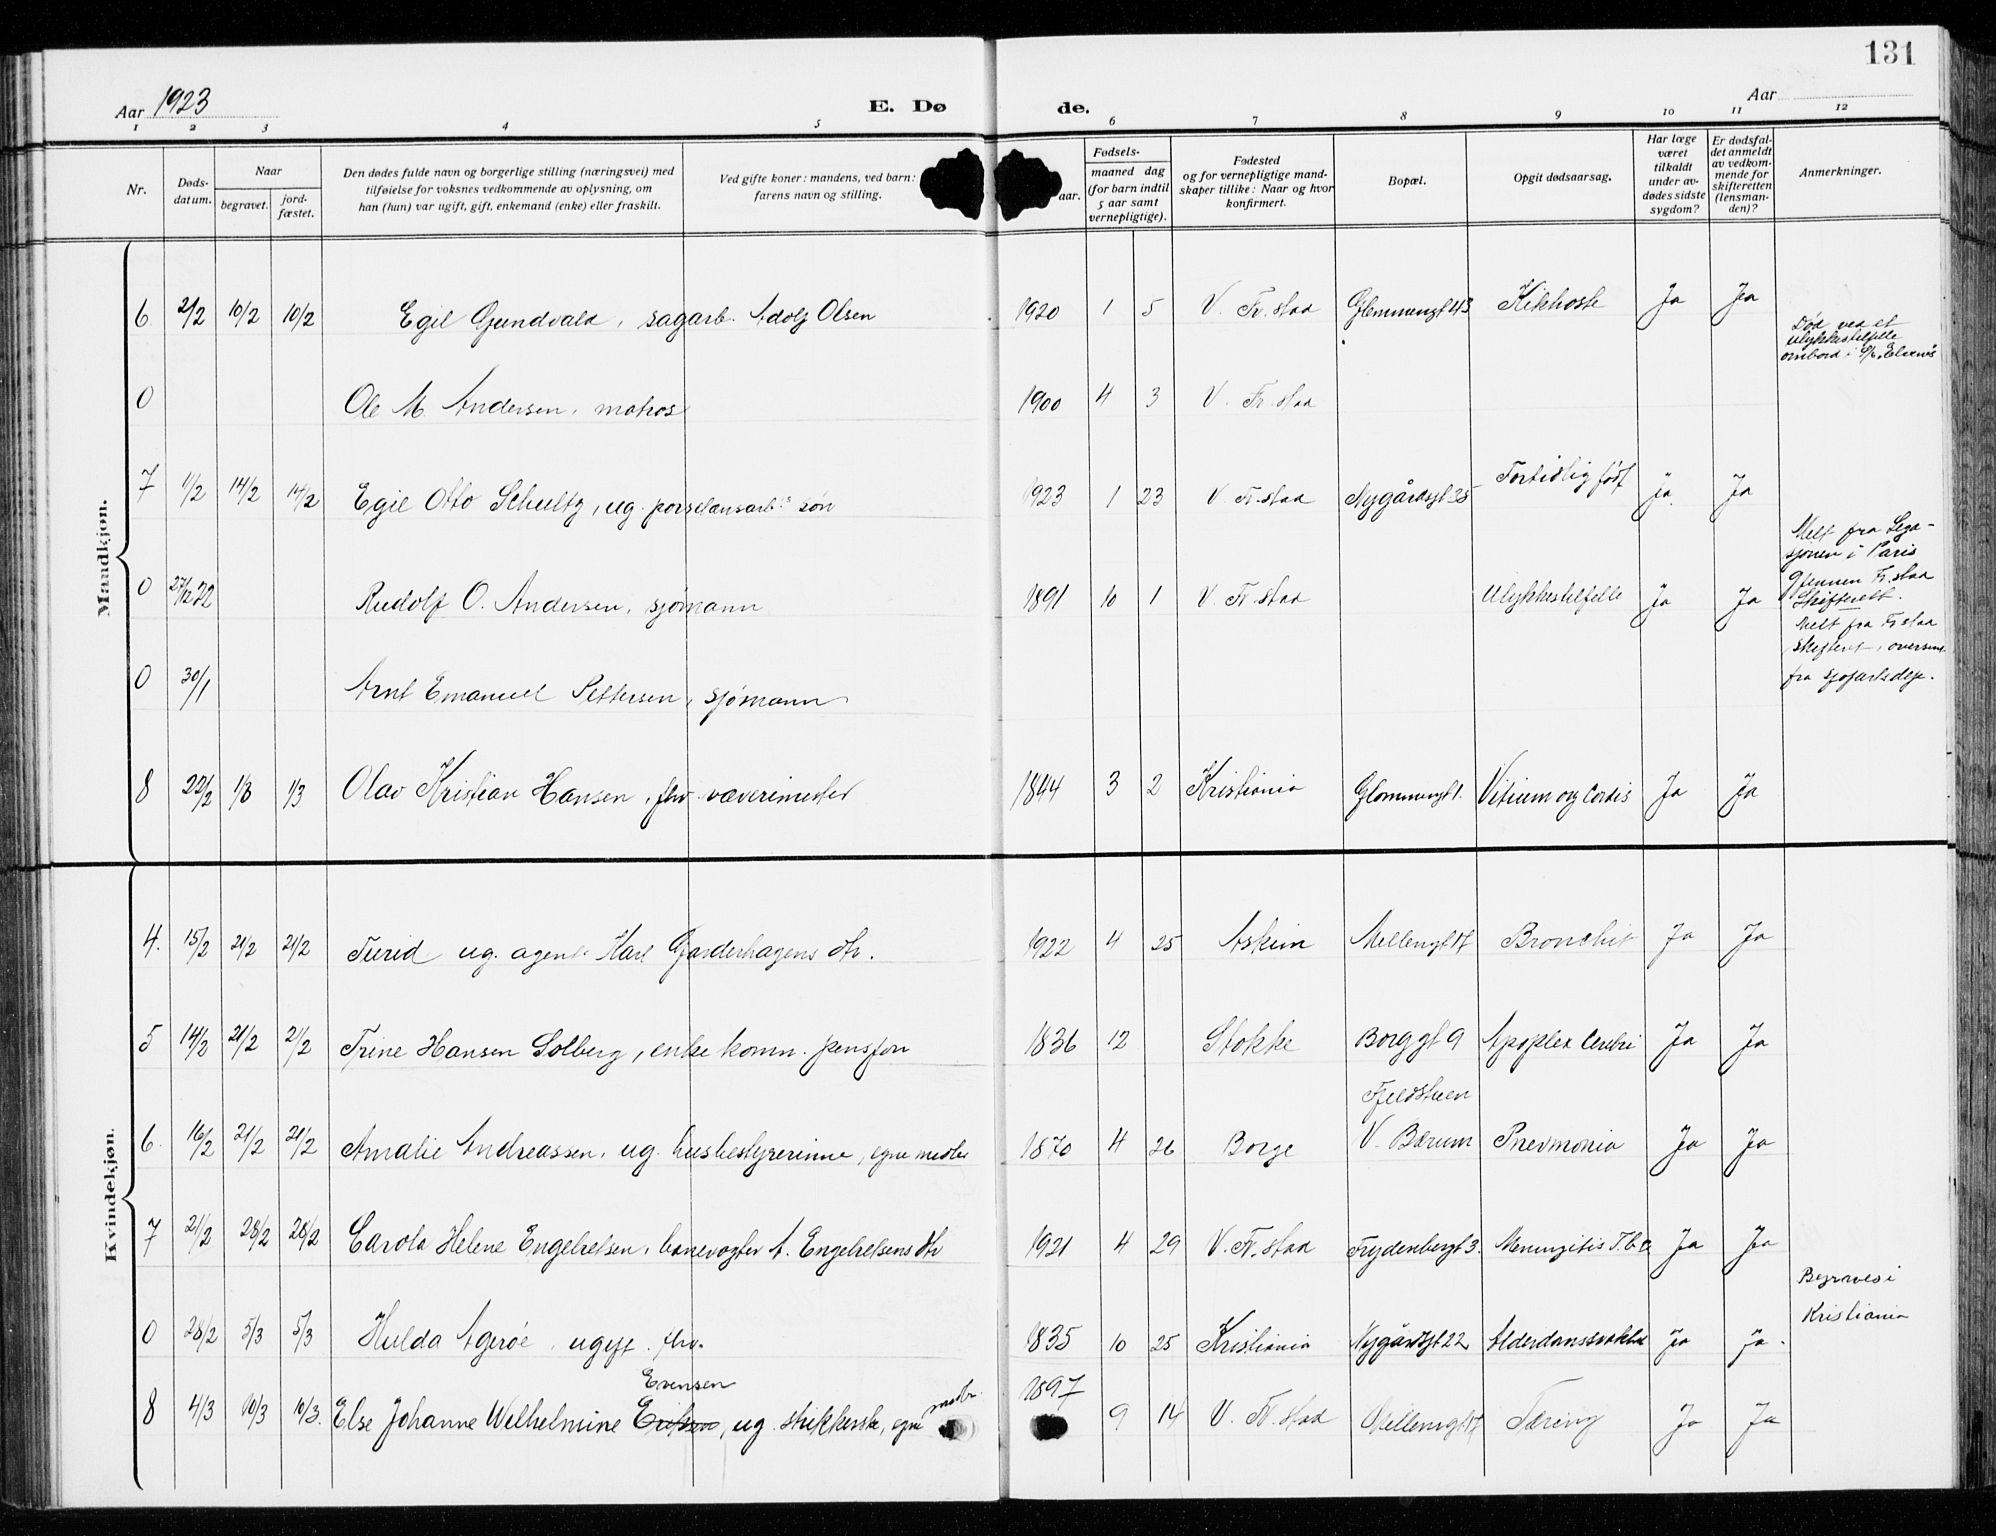 131
Aar 1923
E. Dø
de.
Aar
1 2 3 4 5 6 7 8 9 10 11 12
Nr.
Døds-
datum.
Naar
begravet.
jord-
fæstet.
Den dødes fulde navn og borgerlige stilling (næringsvei) med
tilføielse for voksnes vedkommende av oplysning, om
han (hun) var ugift, gift, enkemand (enke) eller fraskilt.
Ved gifte koner: mandens, ved barn:
farens navn og stilling.
aar.
Fødsels-
maaned dag
(for barn indtil
5 aar samt
vernepligtige).
Fødested
og for vernepligtige mand-
skaper tillike: Naar og hvor
konfirmert.
Bopæl.
Opgit dødsaarsag.
Har læge
været
tilkaldt
under av-
dødes sidste
sygdom?
Er dødsfal-
det anmeldt
av vedkom-
mende for
skifteretten
(lensman-
den)?
Anmerkninger.
Mandkjøn.
6 2/2 10/2 10/2 Egil Gundvald, sagarb. Adolf Olsen 1920 1 5 V. Fr.stad Glemmengt 43 Kikhoste Ja Ja
Død ved et
ulykkestilfelle
ombord i
0 Ole M Andersen, matros 1900 4 3 V. Fr.stad
7 11/2 14/2 14/2 Egil Otto Schultz, ug. porselansarb.s søn 1923 1 23 V. Fr.stad Nygårdsgt 35 Fortidlig født Ja Ja
0 27/12 22 Rudolf O. Andersen, sjømann 1891 10 1 V. Fr.stad Ulykkestilfelle Ja Ja
Melt fra Lega-
sjonen i Paris
gjennem Fr.stad
Skifterett.
0 30/1 Arnt Emanuel Pettersen, sjømann
Melt fra Fr.stad
skifteret, oversent
fra sjøfartsdep.
8 22/2 1/3 1/3 Olav Kristian Hansen, fhv. væverimester 1844 3 2 Kristiania Glommengt 1. Vitium org Cordis Ja Ja
Kvindekjøn.
4. 15/2 21/2 21/2 Turid ug. agent Karl Garderhagens dtr. 1922 4 25 Askim Mellemgt 17 Bronchit Ja Ja
5 14/2 21/2 21/2 Trine Hansen Solberg, enke komm. pensjon 1836 12 Stokke Borggt 9 Apoplex Cerebri Ja Ja
Fjeldstuen
6. 16/2 21/2 21/2 Amalie Andreassen, ug. husbestyrerinne, egne midler 1870 4 26 Borge V. Bærum Pnevmonia Ja Ja
7 21/2 28/2 28/2 Carola Helene Engebretsen, banevogter A. Engebretsens dtr 1921 4 29 V. Fr.stad Frydenbergt 3. Meningitis T.b.c Ja Ja
Begraves i
Kristiania
0 28/2 5/3 5/3 Hulda Agerøe, ugift. fhv. 1835 10 25 Kristiania Nygårdsgt 22 Alderdomssvakhet Ja Ja.
Evensen
8 4/3 10/3 10/3. Else Johanne Wilhelmine Eriksen, ug. strikkerske, egne midler 1897 9 14 V. Fr.stad Mellemgt 17 Tæring Ja Ja